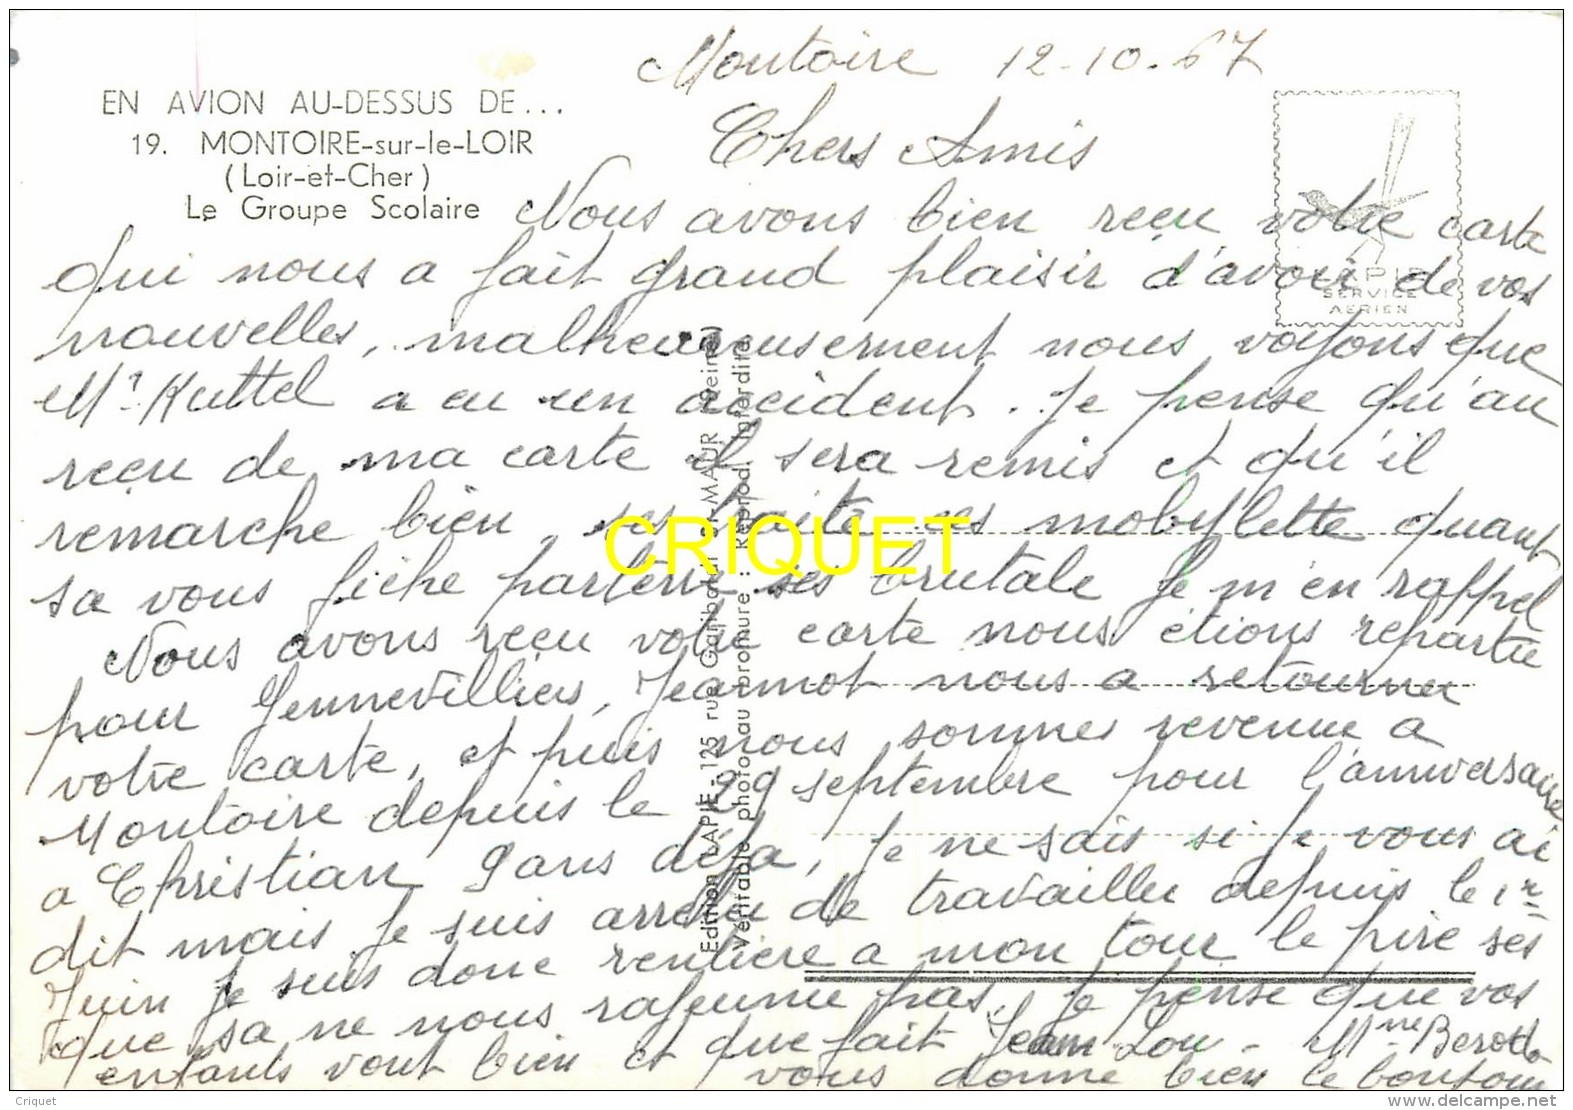 Montoire 12-10-67
EN AVION AU-DESSUS DE...
19. MONTOIRE-sur-le-LOIR
(Loir-et-Cher)
Le Groupe Scolaire
Chers Amis
Nous avons bien reçu votre carte
qui nous a fait grand plaisir d'avoir de vos
nouvelles, malheureusement nous voyons que
Mr Kuttel a eu un accident. Je pense qu'au
reçu de ma carte il sera remis et qu'il
remarche bien, ses traite ces mobylette quant
sa vous fiche parterre ses brutale Je m'en rappel
Nous avons reçu votre carte nous étions repartie
pour Gennevilliers, Jeannot nous a retourner
votre carte, et puis nous sommes revenue a
Montoire depuis le 29 septembre pour l'anniversaire
a Christian 9 ans déja, Je ne sais si je vous ai
dit mais je suis arreter de travailler depuis le 1r
Juin Je suis donc rentiere a mon tour le pire ses
que sa ne nous rajeunie pas. Je pense que vos
enfants vont bien et que fait Jean Lou - Mme Berotto
vous donne bien le bonjour
LAPIE
SERVICE
AERIEN
Edition LAPIE - 125 rue Garibaldi St-MAUR (Seine)
Véritable photo au bromure : Reprod. interdite
CRIQUET
Criquet
delcampe.net